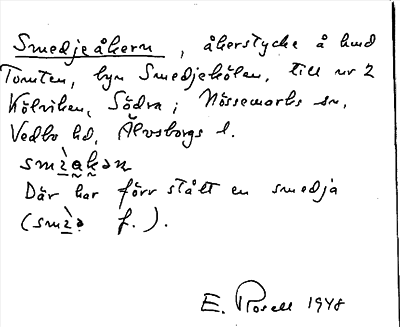 Smedjeåkern, åkerstycke å hmd
Tomten, byn Smedjekölen, till nr 2
Kölviken, Södra; Nössemarks sn,
Vedbo hd, Älvsborgs l.
smìạkən
Där har förr stått en smedja
(smìə f.).
E. Rosell 1948